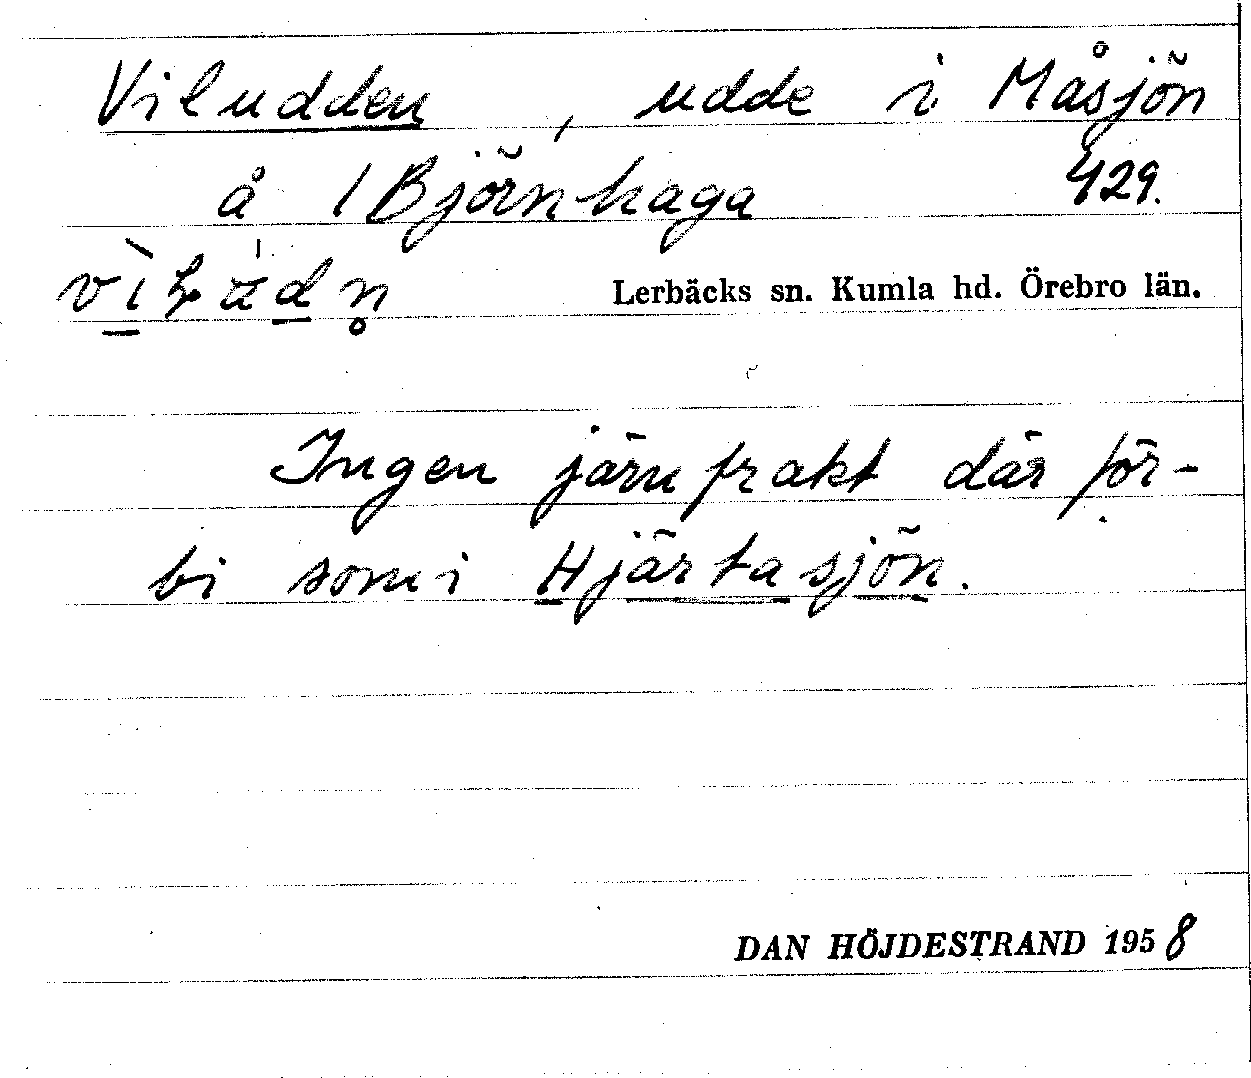 Viludden, udde i Måsjön
å 1 Björnhaga 429.
Lerbäcks sn. Kumla hd. Örebro län.
Ingen järnfrakt där för-
bi som i Hjärtasjön.
DAN HÖJDESTRAND 1958